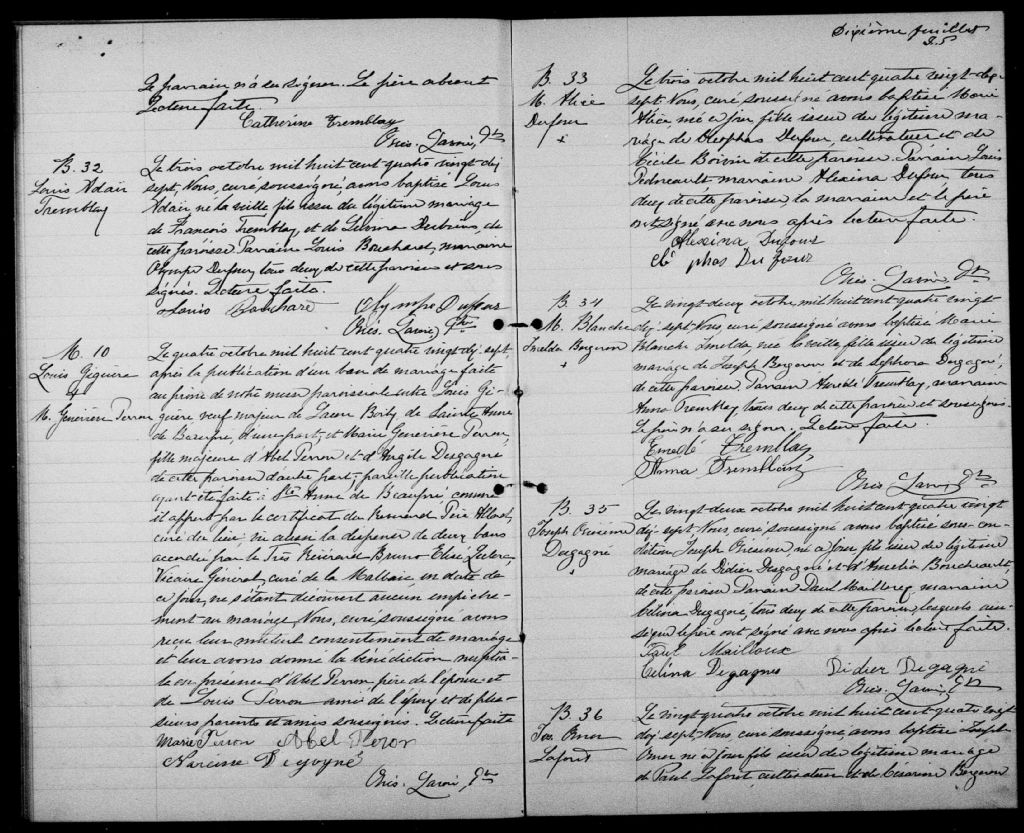 Le parrain n'a su signer. Le père absent
Lecture faite.
Catherine Tremblay
Onés. Lavoie, Ptre
B. 32
Louis Adair
Tremblay
Le trois octobre mil huit cent quatre vingt dix
sept, Nous, curé soussigné, avons baptisé Louis
Adair né la veille fils issu du légitime mariage
de François Tremblay, et de de
cette paroisse Parrain Louis Bouchard, marraine
Olympe Dufour, tous deux de cette paroisse et sous
signés. Lecture faite.
Louis Bouchard Olympe Duffour
Onés. Lavoie, Ptre
M. 10
Louis Giguère
+
M. Geneviève Perron
Le quatre octobre mil huit cent quatre vingt dix sept,
après la publication d'un ban de mariage faite
au prône de notre messe paroissiale entre Louis Gi-
guère veuf majeur de Laure Boily de Sainte Anne
de Beaupré, d'une part, et Marie Geneviève Perron,
fille majeure d'Abel Perron et d'Angèle Desgagné
de cette paroisse d'autre part; pareille publication
ayant été faite à Ste Anne de Beaupré comme
il appert par le certificat du Révérend Père Allard,
curé du lieu, vu aussi la dispense de deux bans
accordée par le Très Révérend Bruno Elisé Leclerc,
Vicaire Général, curé de la Malbaie, en date de
ce jour, ne s'étant découvert aucun empêche-
ment au mariage Nous, curé soussigné avons
reçu leur mutuel consentement de mariage
et leur avons donné la bénédiction nuptia-
le en présence d'Abel Perron père de l'épouse et
de Louis Perron ami de l'époux et de plu-
sieurs parents et amis soussignés. Lecture faite
Marie Perron Abel Peron
Narcisse
Onés. Lavoie, Ptre
Dixième feuillet
B. 33
M. Alice
Dufour
+
Le trois octobre mil huit cent quatre vingt dix-
sept. Nous, curé soussigné avons baptisé Marie
Alice, née ce jour, fille issue du légitime ma-
riage de Cléophas Dufour, cultivateur et de
Cécile Boivin de cette paroisse. Parrain Louis
Pedneault marraine Alexina Dufour tous
deux de cette paroisse, la marraine et le père
ont signé avec nous après lecture faite.
Alexina Dufour
Clé phas Du four
Onés. Lavoie, Pt
B. 34
M. Blanche
Imelda Bergeron
+
Le vingt-deux octobre mil huit cent quatre vingt
dix-sept Nous, curé soussigné avons baptisé Marie
Blanche Imelda, née la veille fille issue du légitime
mariage de Joseph Bergeron et de Sephora Desgagné,
de cette paroisse. Parrain Tremblay, marraine
Anna Tremblay tous deux de cette paroisse et soussignés.
Le père n'a su signer. Lecture faite.
Tremblay
Anna Tremblay
Onés. Lavoie, Ptre
B. 35
Joseph Onésime
Desgagné
Le vingt deux octobre mil huit cent quatre vingt
dix-sept Nous, curé soussigné avons baptisé sous-con-
dition Joseph Onésime né ce jour fils issu du légitime
mariage de Didier Desgagné et d'Amélia Boucheault,
de cette paroisse Parrain Paul Mailloux, marraine
Célina Desgagné, tous deux de cette paroisse, lesquels ain-
si que le père ont signé avec nous après lecture faite.
Paul Mailloux
Célina Degagnes Didier Degagné
Onés. Lavoie, Pt
B. 36
Jos. Omer
Laforet
Le vingt quatre octobre mil huit cent quatre vingt
dix-sept Nous, curé soussigné avons baptisé Joseph
Omer né ce jour fils issu du légitime mariage
de Paul Laforet, cultivateur et de Césarine Bergeron